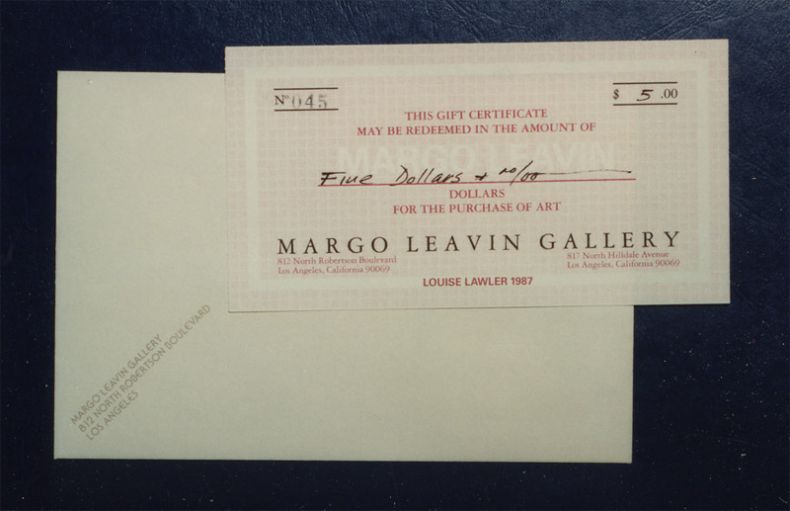 Nº 045
$ 5 .00
THIS GIFT CERTIFICATE
MAY BE REDEEMED IN THE AMOUNT OF
MARGO LEAVIN
Five Dollars + no/00
DOLLARS
FOR THE PURCHASE OF ART
MARGO LEAVIN GALLERY
812 North Robertson Boulevard
Los Angeles, California 90069
817 North Hilldale Avenue
Los Angeles, California 90069
LOUISE LAWLER 1987
MARGO LEAVIN GALLERY
812 NORTH ROBERTSON BOULEVARD
LOS ANGELES